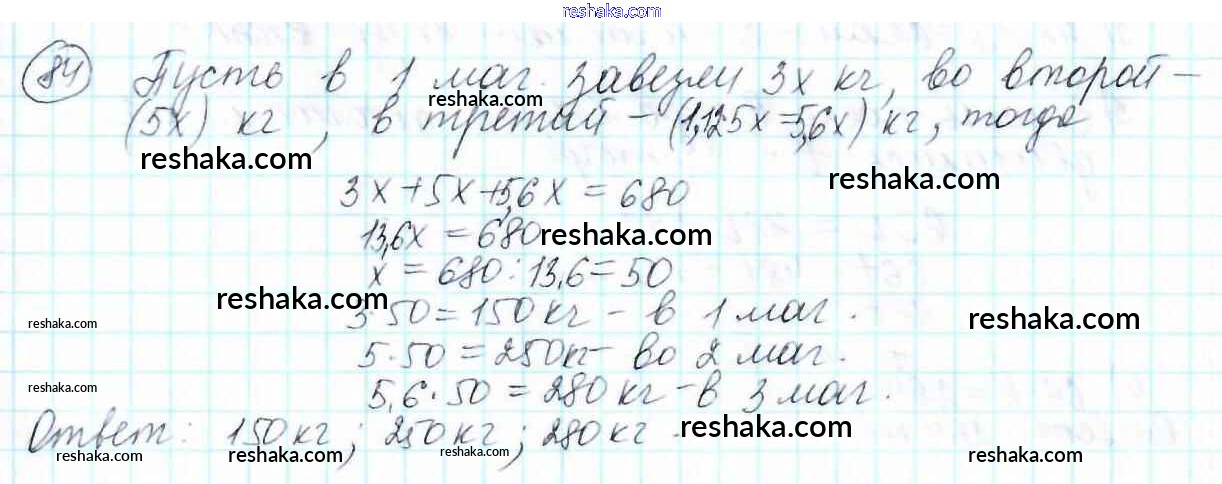 reshaka.com
84 Пусть в 1 маг. завезли 3x кг, во второй –
reshaka.com
(5x) кг, в третий – (1,125x=5,6x) кг, тогда
reshaka.com
reshaka.com
3x+5x+5,6x = 680
13,6x = 680
reshaka.com
x = 680:13,6=50
reshaka.com
3·50=150 кг – в 1 маг.
reshaka.com
reshaka.com
5·50=250кг – во 2 маг.
5,6·50=280 кг – в 3 маг.
reshaka.com
Ответ: 150 кг; 250 кг; 280 кг
reshaka.com
reshaka.com
reshaka.com
reshaka.com
reshaka.com